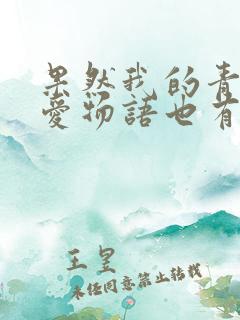 果然我的青
愛物語也有
王皇
未经同意禁止转载